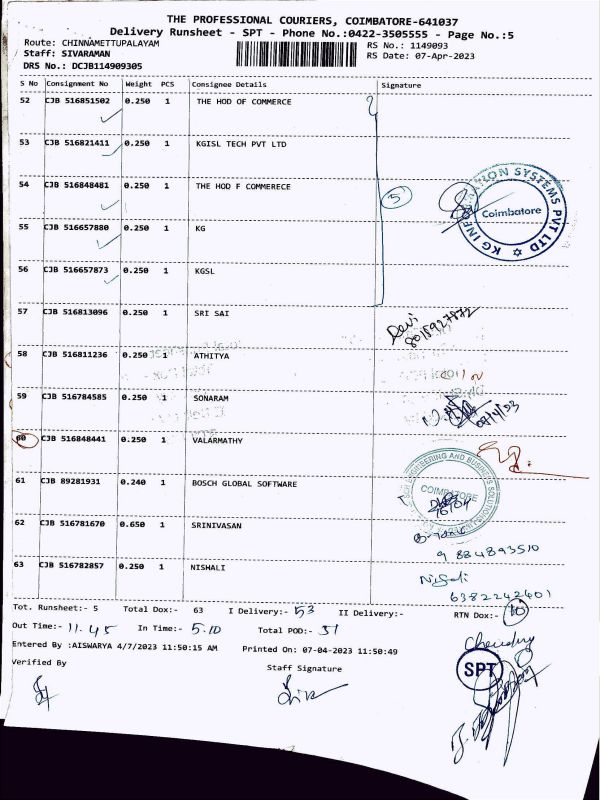 THE PROFESSIONAL COURIERS, COIMBATORE-641037
Delivery Runsheet - SPT - Phone No.:0422-3505555 - Page No.:5
Route: CHINNAMETTUPALAYAM
RS No.: 1149093
Staff: SIVARAMAN
RS Date: 07-Apr-2023
DRS No.: DCJB114909305
S No Consignment No Weight PCS Consignee Details Signature
52 CJB 516851502 0.250 1 THE HOD OF COMMERCE
53 CJB 516821411 0.250 1 KGISL TECH PVT LTD
54 CJB 516848481 0.250 1 THE HOD F COMMERECE
5
KG INFORMATION SYSTEMS PVT LTD
Coimbatore
55 CJB 516657880 0.250 1 KG
56 CJB 516657873 0.250 1 KGSL
57 CJB 516813096 0.250 1 SRI SAI
Devi
8015927872
58 CJB 516811236 0.250 1 ATHITYA
59 CJB 516784585 0.250 1 SONARAM
60 CJB 516848441 0.250 1 VALARMATHY
61 CJB 89281931 0.240 1 BOSCH GLOBAL SOFTWARE
ENGINEERING AND BUSINESS SOLUTIONS
COIMBATORE
62 CJB 516781670 0.650 1 SRINIVASAN
9884893510
63 CJB 516782857 0.250 1 NISHALI
Nishali
6382242401
Tot. Runsheet:- 5 Total Dox:- 63 I Delivery:- 53 II Delivery:- RTN Dox:- 10
Out Time:- 11.45 In Time:- 5.10 Total POD:- 51
Entered By :AISWARYA 4/7/2023 11:50:15 AM Printed On: 07-04-2023 11:50:49
Verified By Staff Signature
SPT